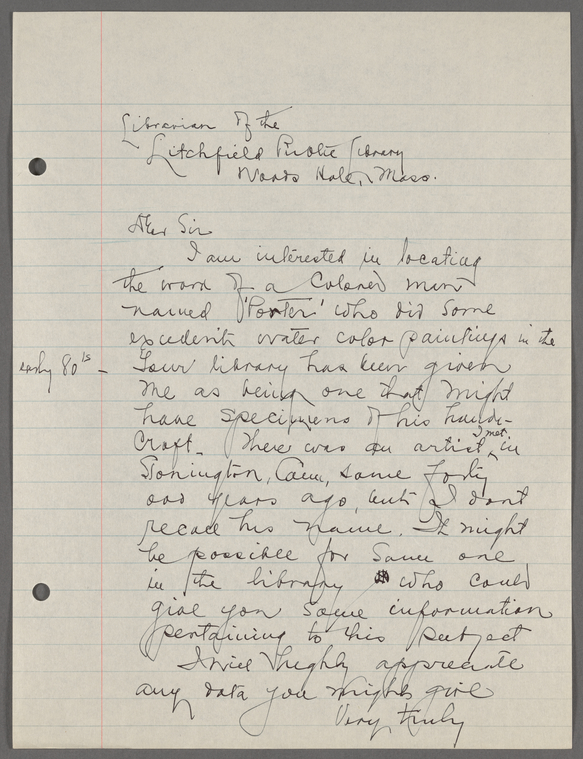 Librarian of the
Litchfield Public Library
Woods Hole, Mass.
Dear Sir
I am interested in locating
the work of a Colored man
named 'Porter' who did some
excellent water color paintings in the
early 80's –
Your library has been given
me as being one that might
have specimens of his handi-
craft. There was an artist I met in
Stonington, Conn, some forty
odd years ago, but I dont
recall his name. It might
be possible for some one
in the library who could
give you some information
pertaining to this subject
I will highly appreciate
any data you might give
Very truly